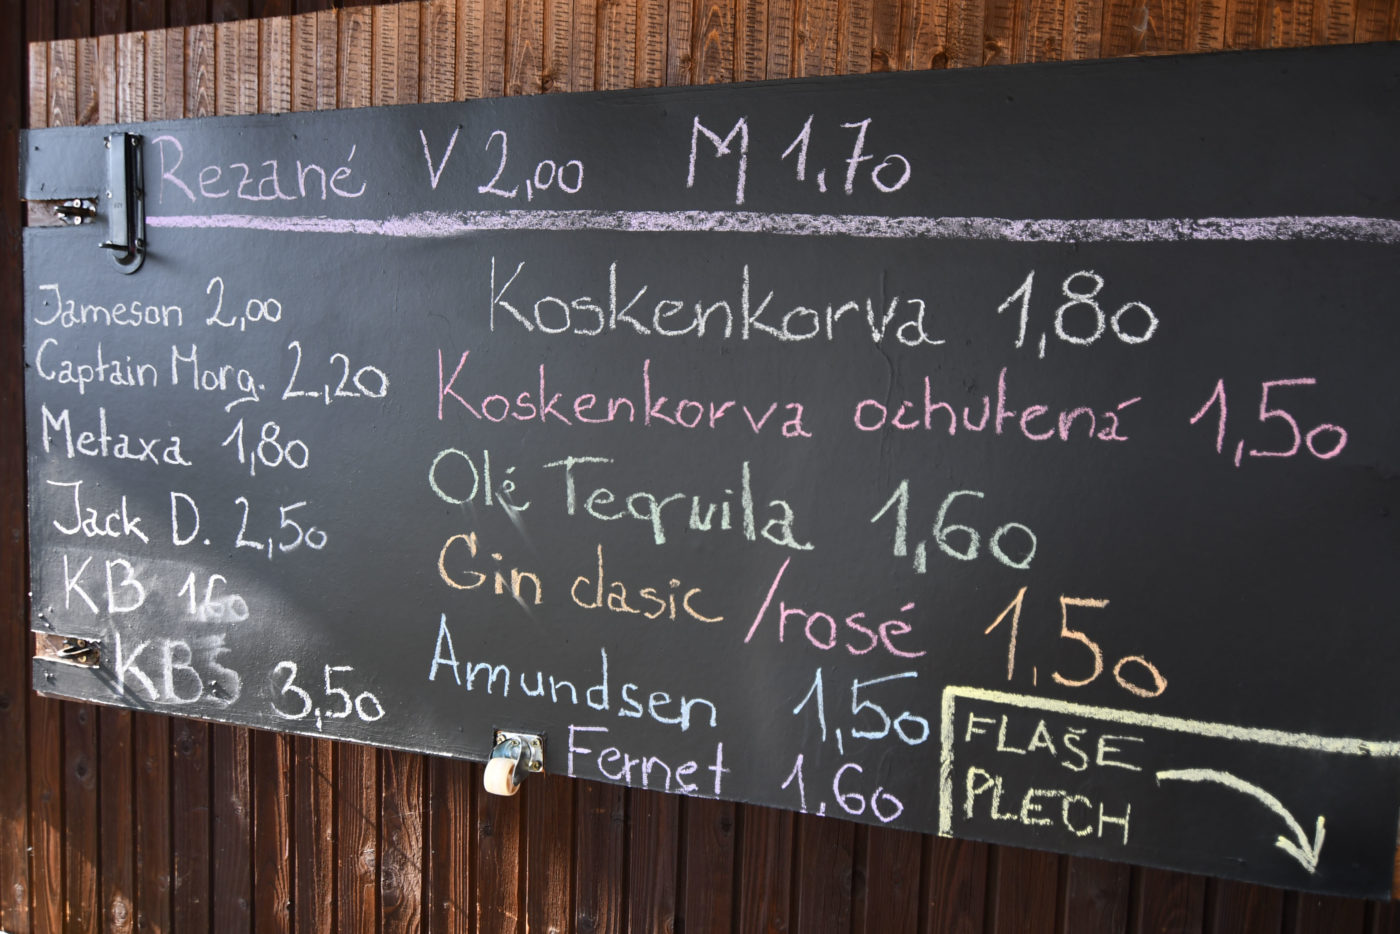 Rezané V 2,00 M 1,70
Jameson 2,00
Captain Morg. 2,20
Metaxa 1,80
Jack D. 2,50
KB 1,60
KBš 3,50
Koskenkorva 1,80
Koskenkorva ochutená 1,50
Olé Tequila 1,60
Gin clasic /rosé 1,50
Amundsen 1,50
Fernet 1,60
FLAŠE
PLECH